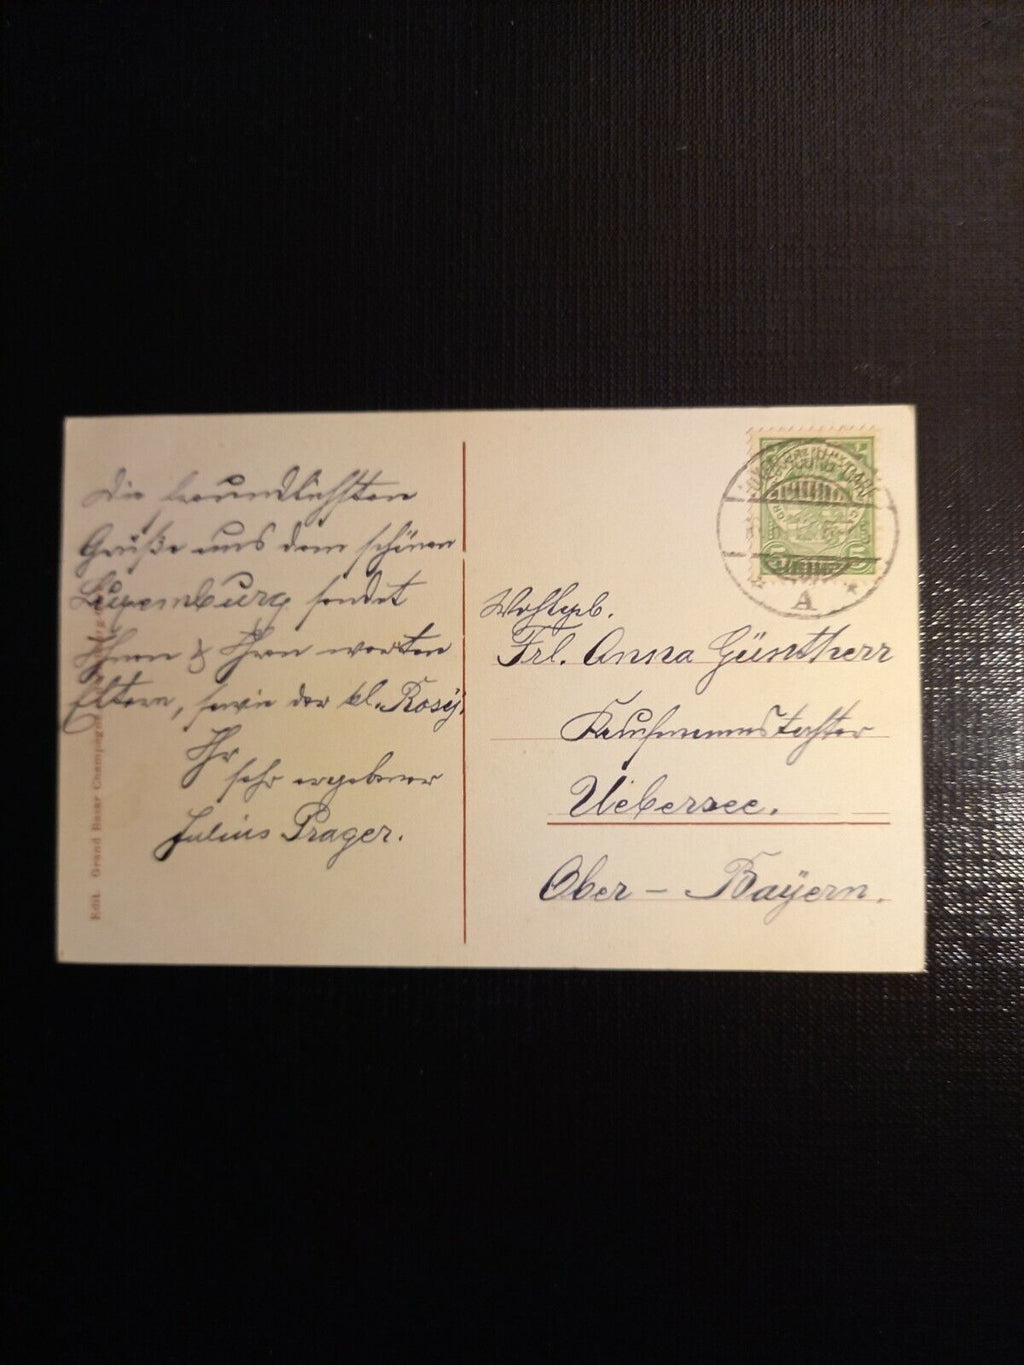 Die freundlichsten
Grüße aus dem schönen
Luxemburg sendet
Ihnen & Ihren werten
Eltern, sowie der kl. Rosy,
Ihr
sehr ergebener
Julius Prager.
Wohlgeb.
Frl. Anna Güntherr
Kaufmannstochter
Uebersee.
Ober - Bayern.
Edit. Grand Bazar Champagne
5 5
A